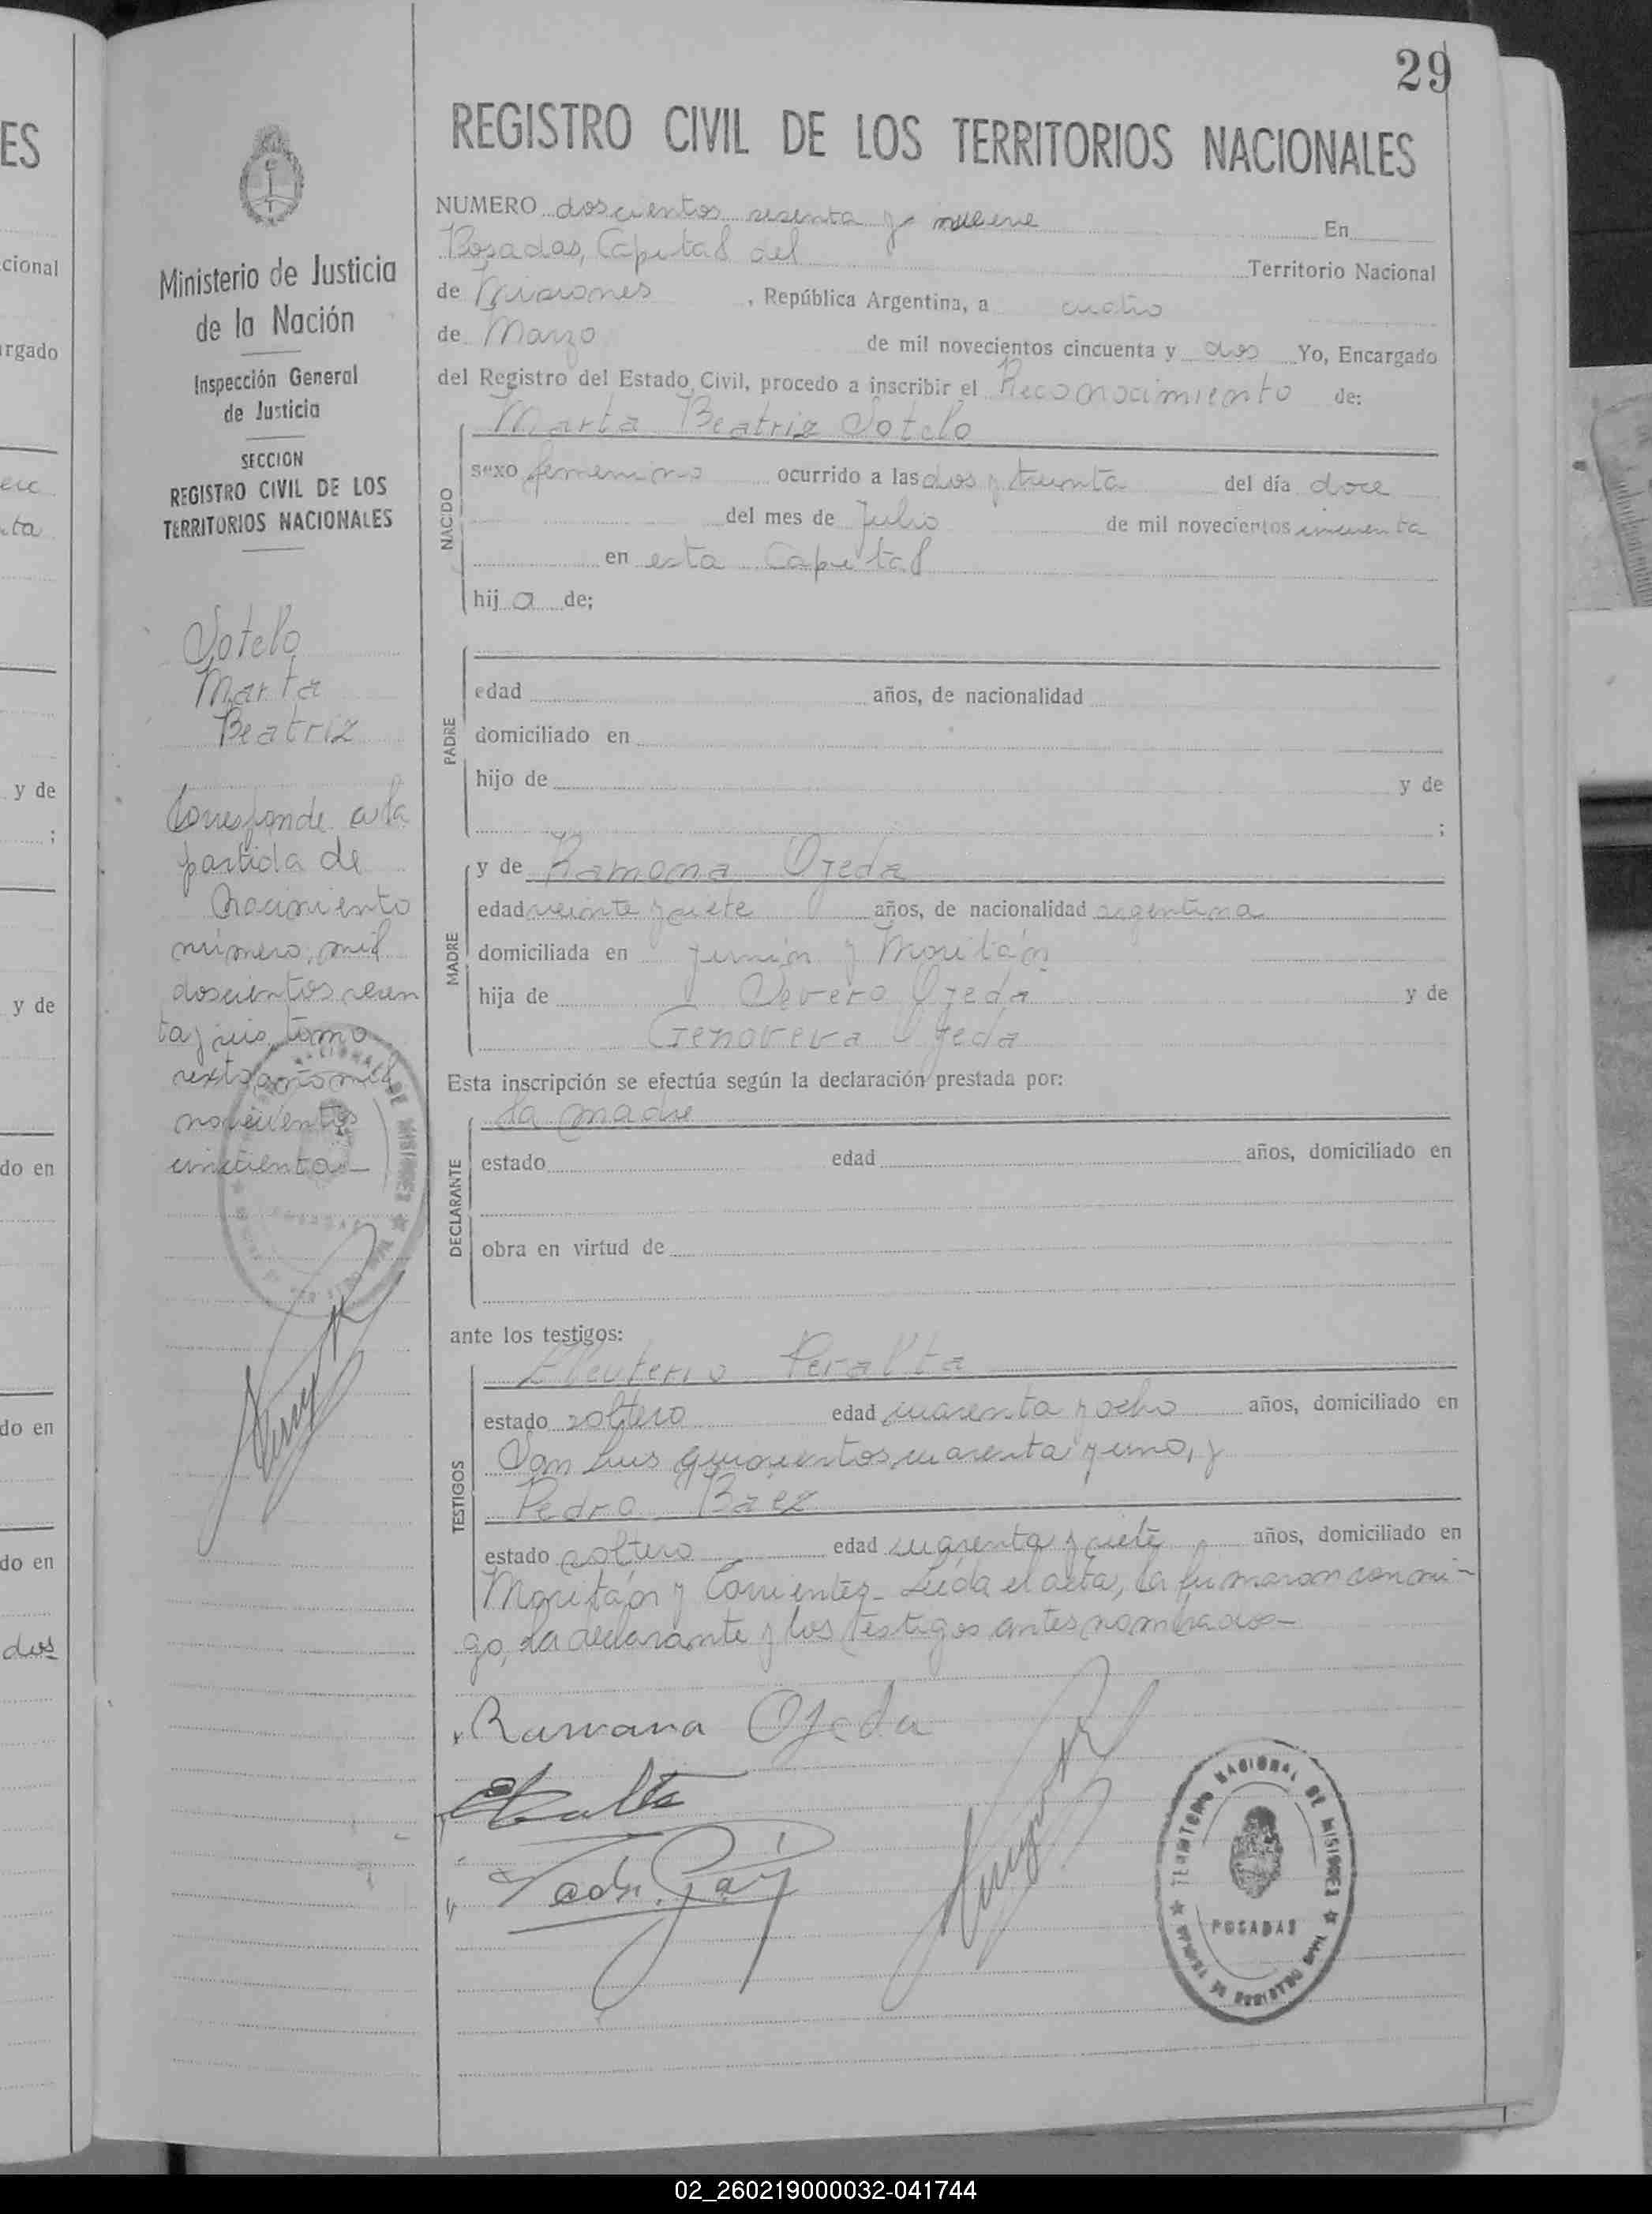 29
REGISTRO CIVIL DE LOS TERRITORIOS NACIONALES
ES
cional
rgado
y de
;
y de
do en
do en
do en
dos
Ministerio de Justicia
de la Nación
Inspección General
de Justicia
SECCION
REGISTRO CIVIL DE LOS
TERRITORIOS NACIONALES
Sotelo
Marta
Beatriz
Corresponde a la
partida de
Nacimiento
número mil
doscientos sesen
ta y seis, tomo
sexto año mil
novecientos
cincuenta
NUMERO doscientos sesenta y nueve En
Posadas, Capital del Territorio Nacional
de Misiones, República Argentina, a cuatro
de Marzo de mil novecientos cincuenta y dos Yo, Encargado
del Registro del Estado Civil, procedo a inscribir el Reconocimiento de:
Marta Beatriz Sotelo
NACIDO
sexo femenino ocurrido a las dos y treinta del día doce
del mes de Julio de mil novecientos cincuenta
en esta Capital
hij a de;
PADRE
edad años, de nacionalidad
domiciliado en
hijo de y de
;
MADRE
y de Ramona Ojeda
edad veinte y siete años, de nacionalidad argentina
domiciliada en Junín y Moritán
hija de Severo Ojeda y de
Genoveva Ojeda
Esta inscripción se efectúa según la declaración prestada por:
la madre
DECLARANTE
estado edad años, domiciliado en
obra en virtud de
ante los testigos:
TESTIGOS
Eleuterio Peralta
estado soltero edad cuarenta y ocho años, domiciliado en
San Luis quinientos cuarenta y uno, y
Pedro Baez
estado soltero edad cuarenta y siete años, domiciliado en
Moritán y Corrientes - Leída el acta, la firmaron conmi-
go, la declarante y los testigos antes nombrados-
Ramona Ojeda
TERRITORIO NACIONAL DE MISIONES
POSADAS
02_260219000032-041744